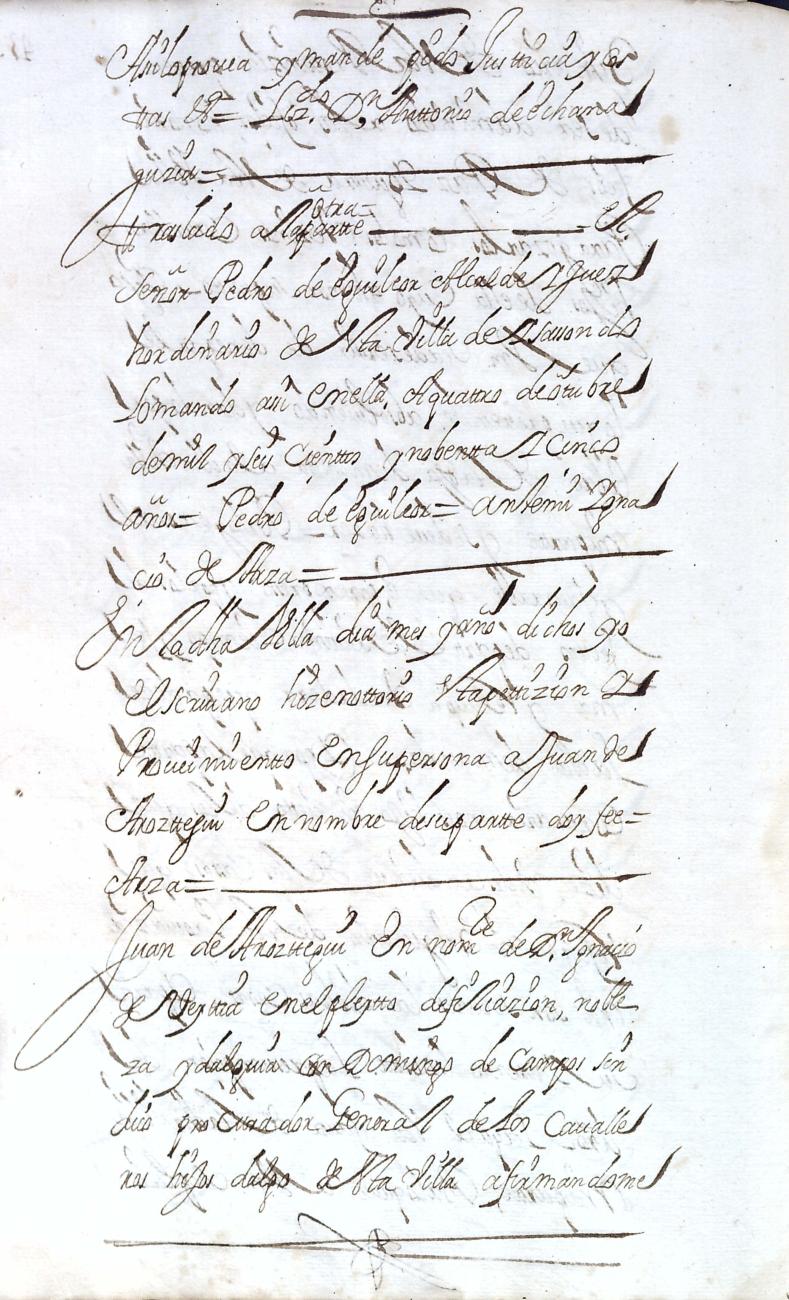 Asi lo provea y mande qe pido Justticia y cos
ttas &ª= Lizdo. Dn. Anttonio de echana
guzia=
ttraslado a la otra= partte El
Señor Pedro de eguileor Alcalde y Juez
hordinario de Vta Villa de
lo mando asi en ella, A quattro de ottubre
de mil y seis Cientos y nobentta y cinco
años= Pedro de eguileor= antemi Ygna
cio de Arza=
En la dha Villa dia mes y año dichos yo
el scrivano hize nottorio Vta pettizion y
Proveimientto En su persona a Juan de
Arozttegui En nombre de su partte doy fee=
Arza=
Juan de Arozttegui En nomBe de Dn. Ygnacio
de Verttiz en el pleytto de filiazion, noble
za ydalguia con Domingo de Campos sin
dico procurador General de los Cavalle
ros hijos dalgo de Vta Villa afirmandome